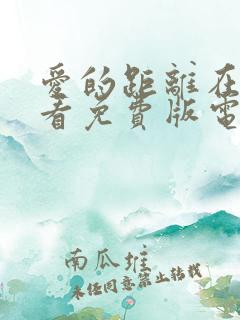 愛的距離在
看免費版電
南瓜堆
未经同意禁止转载